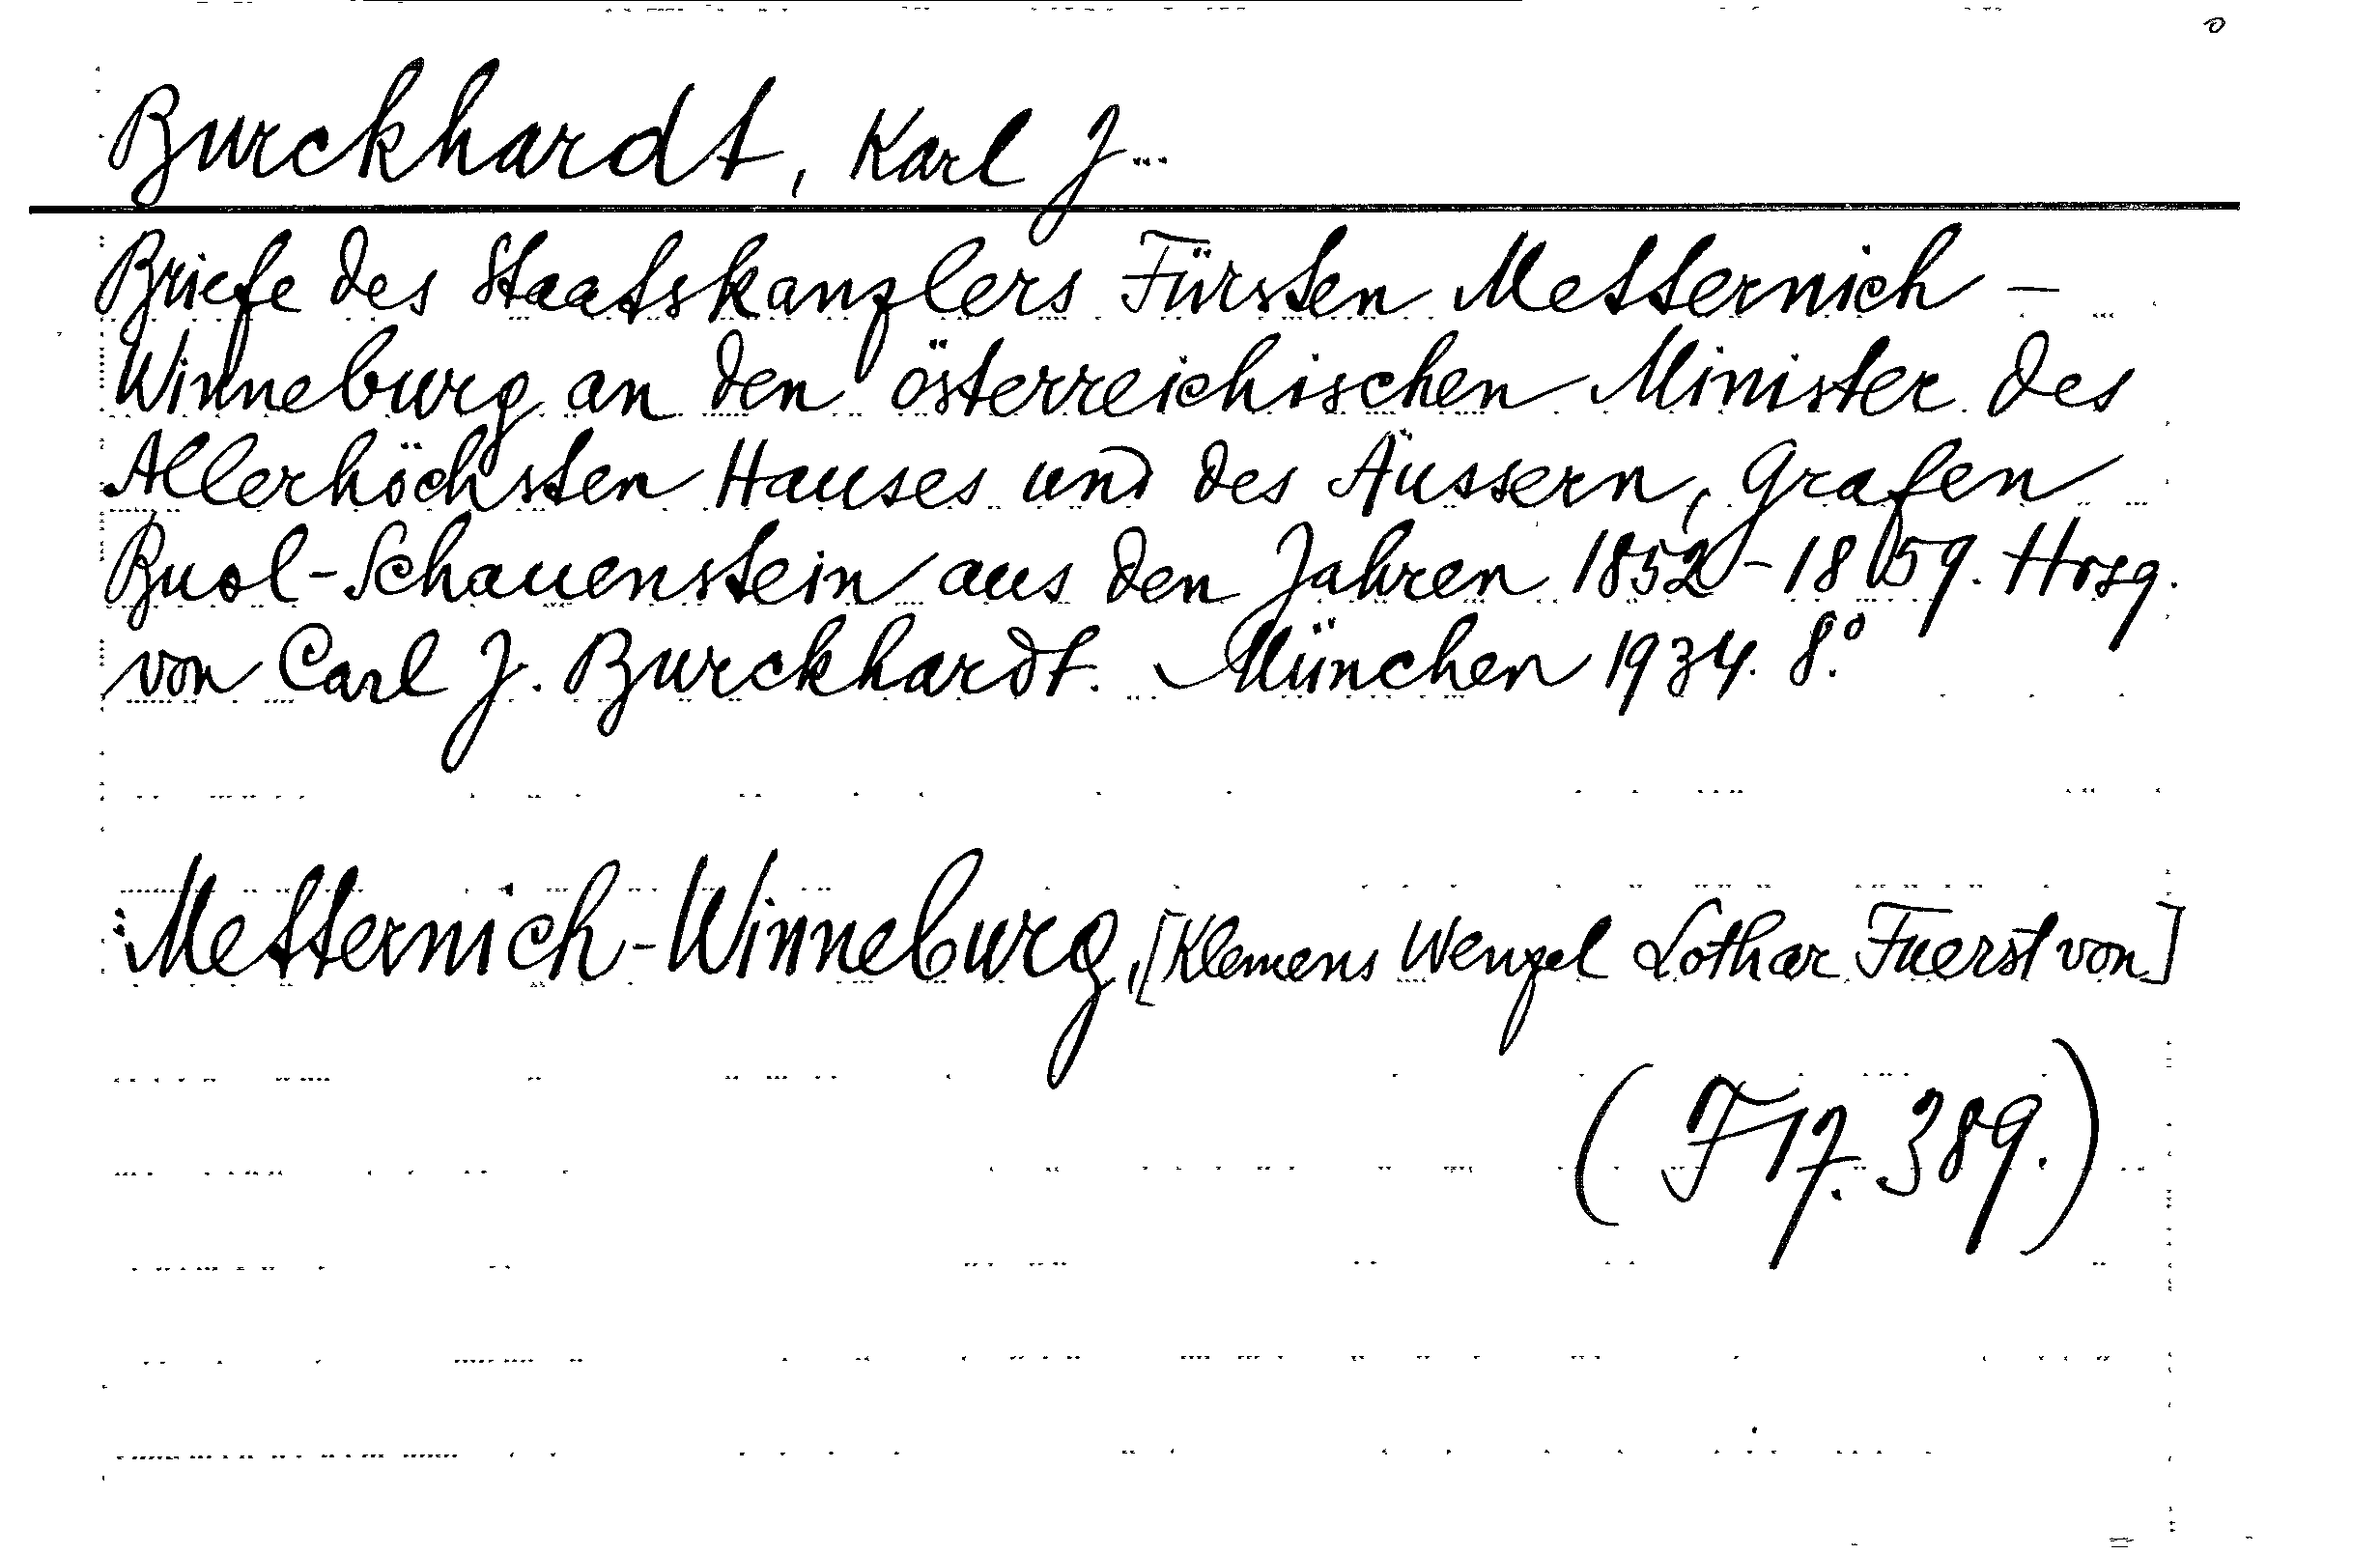 Burckhardt, Karl J...
Briefe des Staatskanzlers Fürsten Metternich -
Winneburg an den österreichischen Minister des
Allerhöchsten Hauses und des Äussern, Grafen
Buol-Schauenstein aus den Jahren 1852-1859. Hrsg.
von Carl J. Burckhardt. München 1934. 8.°
Metternich-Winneburg, [Klemens Wenzel Lothar Fuerst von]
(F 17. 389.)